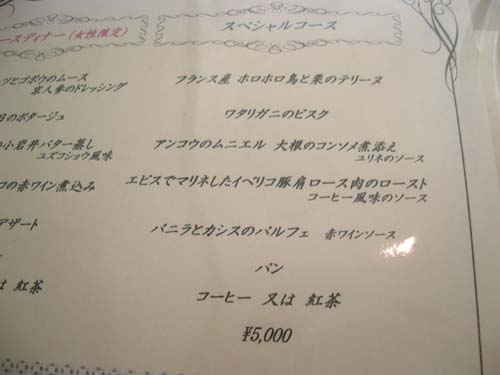 ースディナー（女性限定）
ツとゴボウのムース
京人参のドレッシング
日のポタージュ
の小岩井バター蒸し
ユズコショウ風味
コの赤ワイン煮込み
デザート
は 紅茶
スペシャルコース
フランス産 ホロホロ鳥と栗のテリーヌ
ワタリガニのビスク
アンコウのムニエル 大根のコンソメ煮添え
ユリネのソース
エピスでマリネしたイベリコ豚肩ロース肉のロースト
コーヒー風味のソース
バニラとカシスのパルフェ 赤ワインソース
パン
コーヒー 又は 紅茶
¥5,000